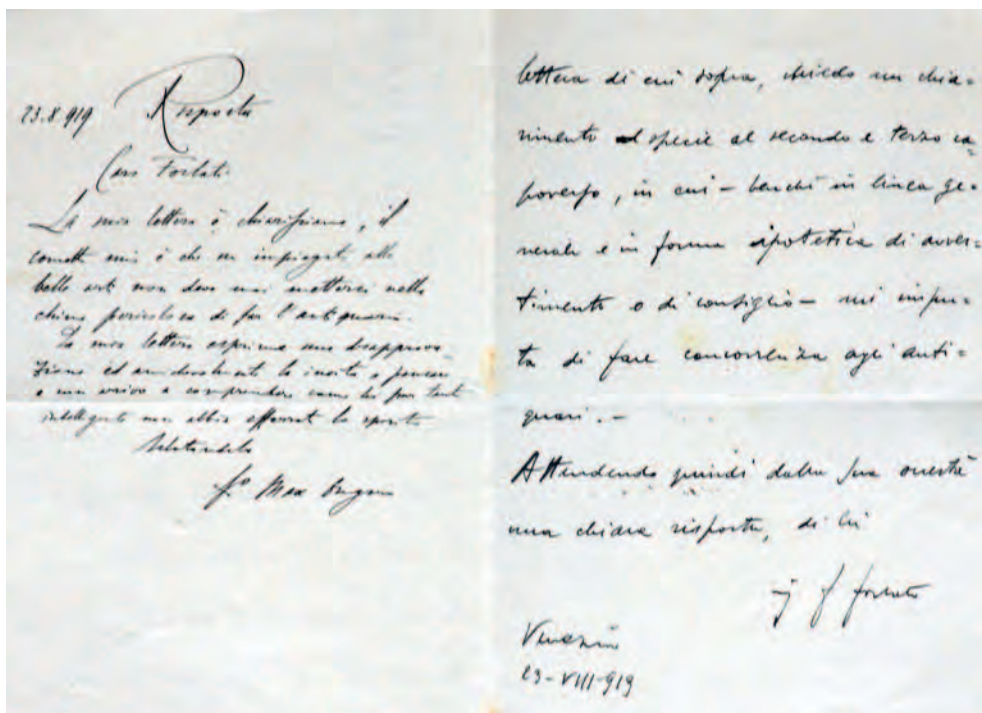 23.8.919 Risposta
Caro Forlati
La mia lettera è chiarissima, il
è che un impiegato alle
belle arti non deve mai mettersi nella
china pericolosa di far l'antiquario.
La mia lettera esprime una disapprova-
zione ed amichevolmente la invita a pensare
e non arrivo a comprendere come lei pur tanto
intelligente non abbia afferrato lo spirito
Salutandola
fo Max Ongaro
lettera di cui sopra, chiedo un chia=
rimento specie al secondo e terzo ca=
poverso, in cui – benchè in linea ge=
nerale e in forma ipotetica di avver=
timento o di consiglio – mi impu=
ta di fare concorrenza agli anti=
quari. –
Attendendo quindi dalla sua onestà
una chiara risposta, di lei
f forlati
Venezia
23-VIII-919